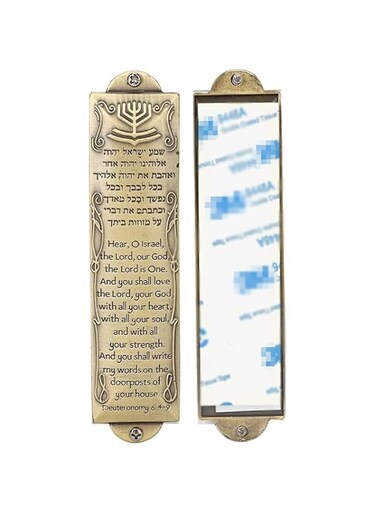 שמע ישראל יהוה
אלוהינו יהוה אחד
ואהבת את יהוה אלהיך
בכל לבבך ובכל
נפשך ובכל מאדך
וכתבתם את דברי
על מזוזות ביתך
Hear, O Israel,
the Lord, our God
the Lord is One.
And you shall love
the Lord, your God
with all your heart,
with all your soul,
and with all
your strength.
And you shall write
my words on the
doorposts of
your house
Deuteronomy 6:4-9
9448A